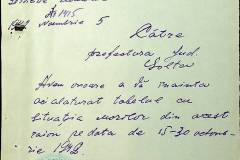 No 1915
Noembrie 5
Către
prefectura Jud.
Avem onoare a Vă înainta
aci alăturat tabelul cu
situația morților din acest
raion pe data de 15-30 octom-
brie 1942